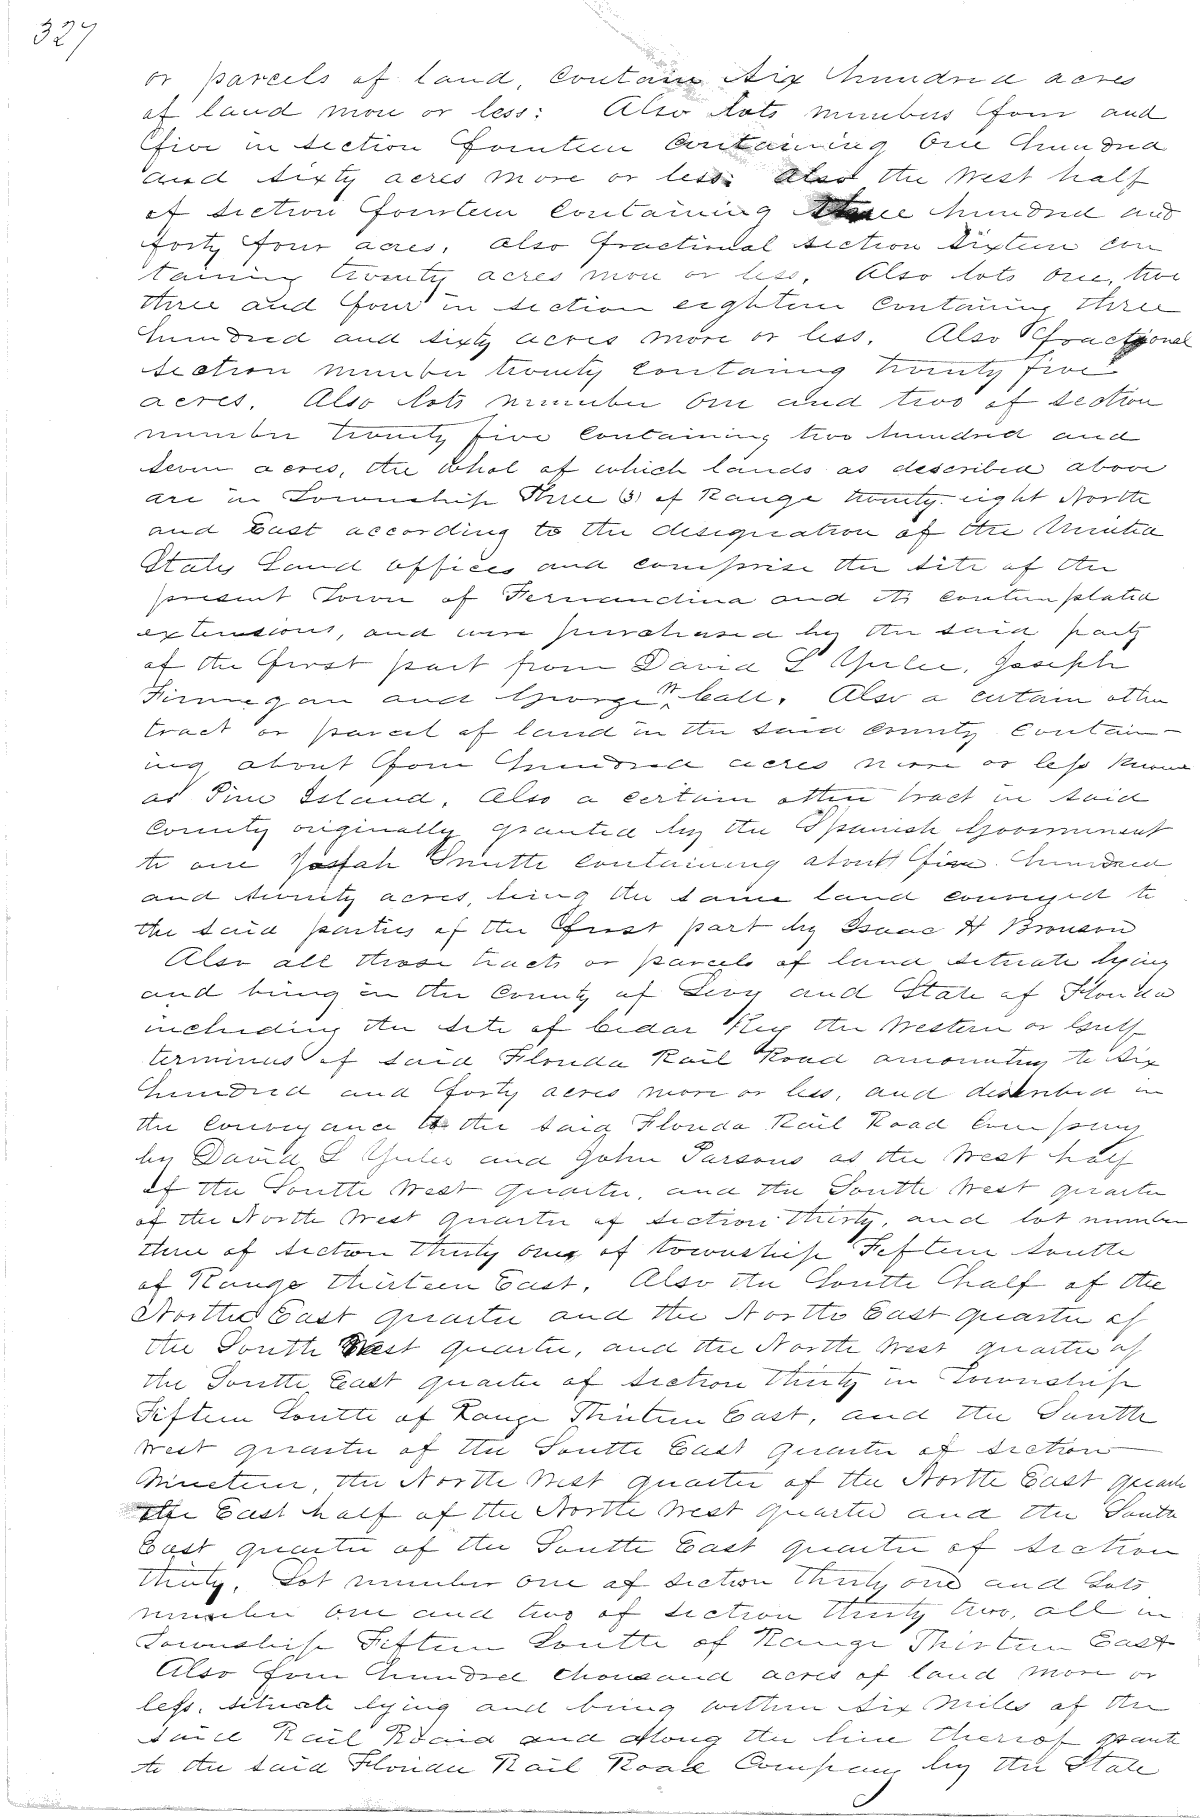 327
or parcels of land, contain six hundred acres
of land more or less: Also lots numbers four and
five in section fourteen containing one hundred
and sixty acres more or less: also the West half
of section fourteen containing three hundred and
forty four acres, also fractional section sixteen con
taining twenty acres more or less. Also lots one, two
three and four in section eighteen containing three
hundred and sixty acres more or less. Also fractional
section number twenty containg twenty five
acres. Also lots number one and two of section
number twenty five containing two hundred and
seven acres, the whol of which lands as described above
are in Township Three (3) of Range twenty eight North
and East according to the designation of the United
States Land offices and comprise the site of the
present Town of Fernandina and its contemplated
extensions, and were purchased by the said party
of the first part from David L Yulee, Joseph
Finnegan and George W. Call. Also a certain other
tract or parcel of land in the said County contain-
ing about four hundred acres more or less known
as Pine Island. Also a certain other tract in said
County originally granted by the Spanish Government
to one Josiah Smith containing about five hundred
and twenty acres, being the same land conveyed to
the said parties of the first part by Isaac H Bronson
Also all those tracts or parcels of land situate lying
and being in the County of Levy and State of Florida
including the site of Cedar Key the Western or Gulf
terminus of said Florida Rail Road amounting to six
hundred and forty acres more or less, and described in
the conveyance to the said Florida Rail Road Company
by David L Yulee and John Parsons as the West half
of the South West quarter, and the South West quarter
of the North West quarter of section thirty, and lot number
three of section thirty one, of township Fifteen South
of Range thirteen East. Also the South half of the
North East quarter and the North East quarter of
the South West quarter, and the North West quarter of
the South East quarter of section thirty in Township
Fifteen South of Range Thirteen East, and the South
West quarter of the South East quarter of section
Nineteen, the North West quarter of the North East quarte
the East half of the North West quarter and the South
East quarter of the South East quarter of section
thirty. Lot number one of section thirty one and Lots
number one and two of section thirty two, all in
Township Fifteen South of Range Thirteen East
Also four hundred thousand acres of land more or
less, situate lying and being within six miles of the
said Rail Road and along the line thereof grant
to the said Florida Rail Road Company by the State